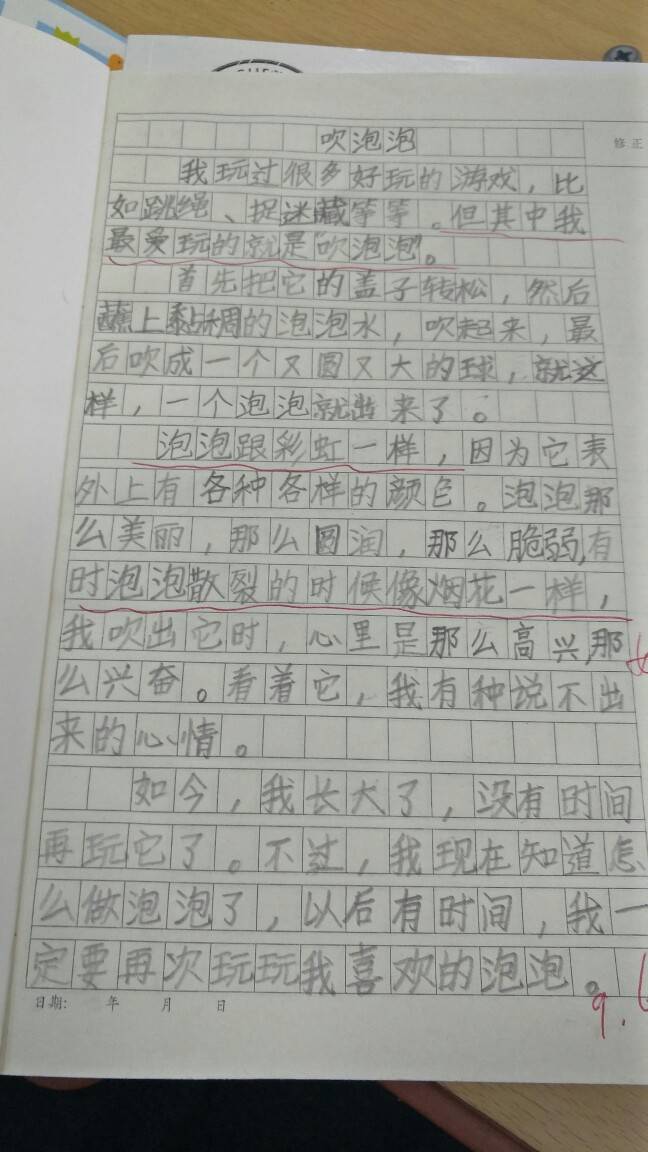 吹泡泡
修正
我玩过很多好玩的游戏，比
如跳绳、捉迷藏等等。但其中我
最爱玩的就是“吹泡泡”。
首先把它的盖子转松，然后
蘸上黏稠的泡泡水，吹起来，最
后吹成一个又圆又大的球，就这
样，一个泡泡就出来了。
泡泡跟彩虹一样，因为它表
外上有各种各样的颜色。泡泡那
么美丽，那么圆润，那么脆弱，有
时泡泡散裂的时候像烟花一样，
我吹出它时，心里是那么高兴，那
么兴奋。看着它，我有种说不出
来的心情。
如今，我长大了，没有时间
再玩它了。不过，我现在知道怎
么做泡泡了，以后有时间，我一
定要再次玩玩我喜欢的泡泡。
日期： 年 月 日